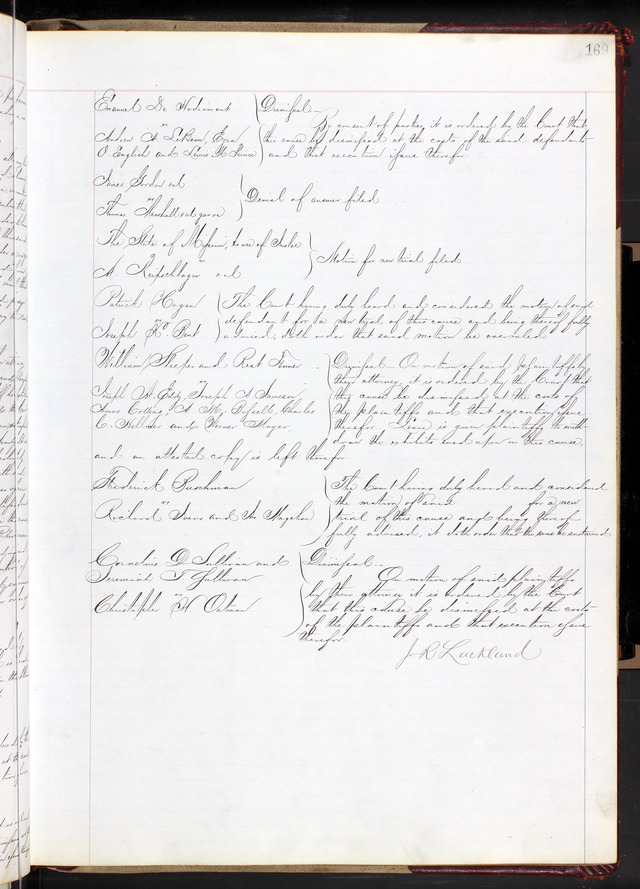 169
Emanuel De Hodiamont } Dismissal.
By consent of parties it is ordered by the Court that
vs
Andrew A this cause be dismissed at the costs of the said defendants
O. English and Lewis M and that execution issue therefor
James et al
vs } Denial of answer filed
Thomas Marshall et al garnee
The State of Missouri, to use of
vs } Motion for new trial filed
A. et al
Patrick Hogan } The Court having duly heard and considered the motion of said
vs defendant for a new trial of this cause and being thereof fully
Joseph advised, doth order that said motion be overruled
William and } Dismissal On motion of said plaintiffs by
vs their attorney it is ordered by the Court that
Joseph A. Eddy, Joseph S. this cause be dismissed at the costs of
Amos Cotting, A. M. Charles the plaintiffs and that execution issue
C. and Werner therefor Leave is given plaintiffs to with
draw the exhibits sued upon in this cause
and an attested copy is left therefor
Frederick Buschman } The Court having duly heard and considered
vs the motion of for a new
Richard Ivers and trial of this cause and being thereof
fully advised, it doth order that the same be sustained
Cornelius D. Sullivan and } Dismissal.
Jeremiah T Sullivan On motion of said plaintiffs
vs by their attorney it is ordered by the Court
Christopher W that this cause be dismissed at the costs
of the plaintiffs and that execution issue
therefor
J R Lackland